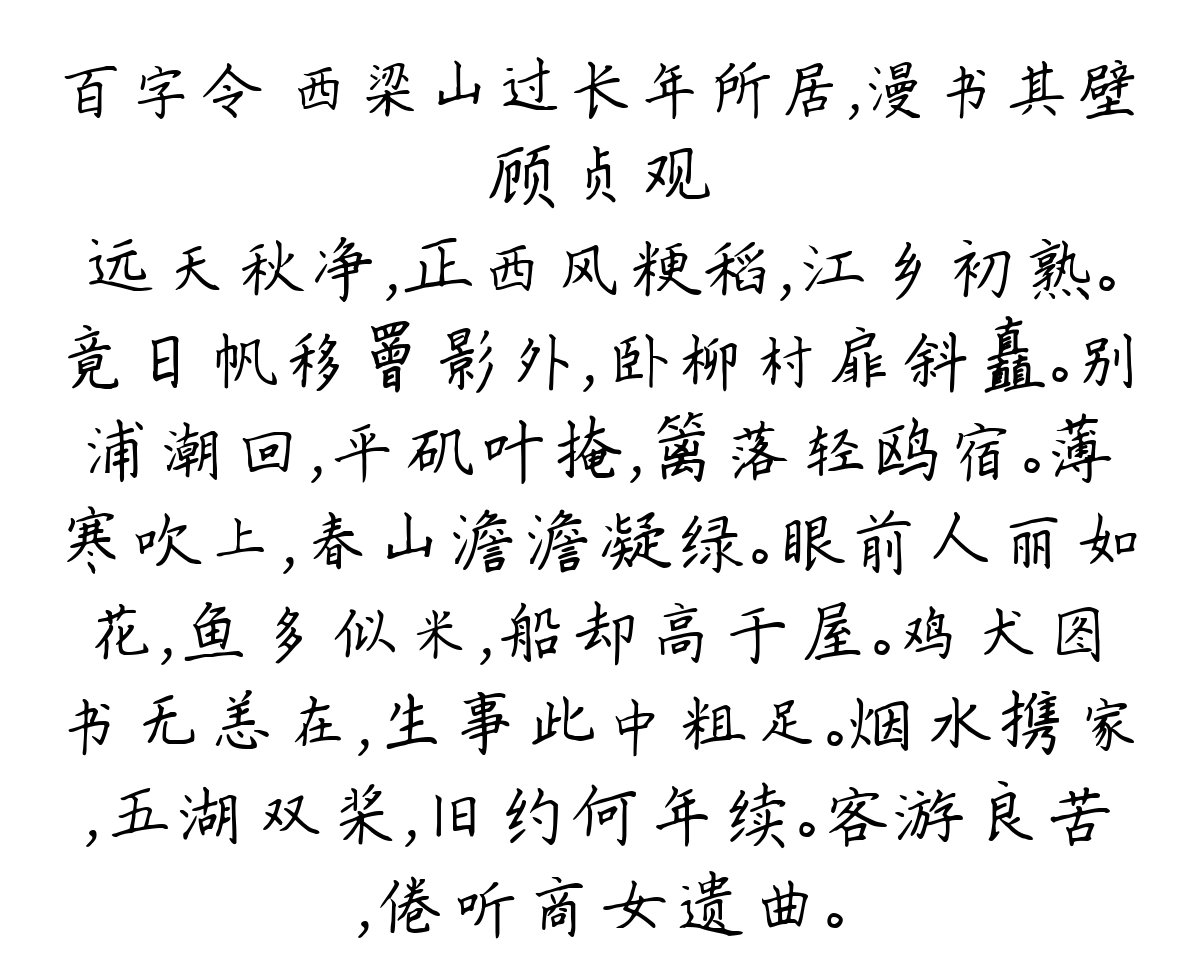 百字令 西梁山过长年所居,漫书其壁
顾贞观
远天秋净,正西风粳稻,江乡初熟。
竟日帆移罾影外,卧柳村扉斜矗。别
浦潮回,平矶叶掩,篱落轻鸥宿。薄
寒吹上,春山澹澹凝绿。眼前人丽如
花,鱼多似米,船却高于屋。鸡犬图
书无恙在,生事此中粗足。烟水携家
,五湖双桨,旧约何年续。客游良苦
,倦听商女遗曲。